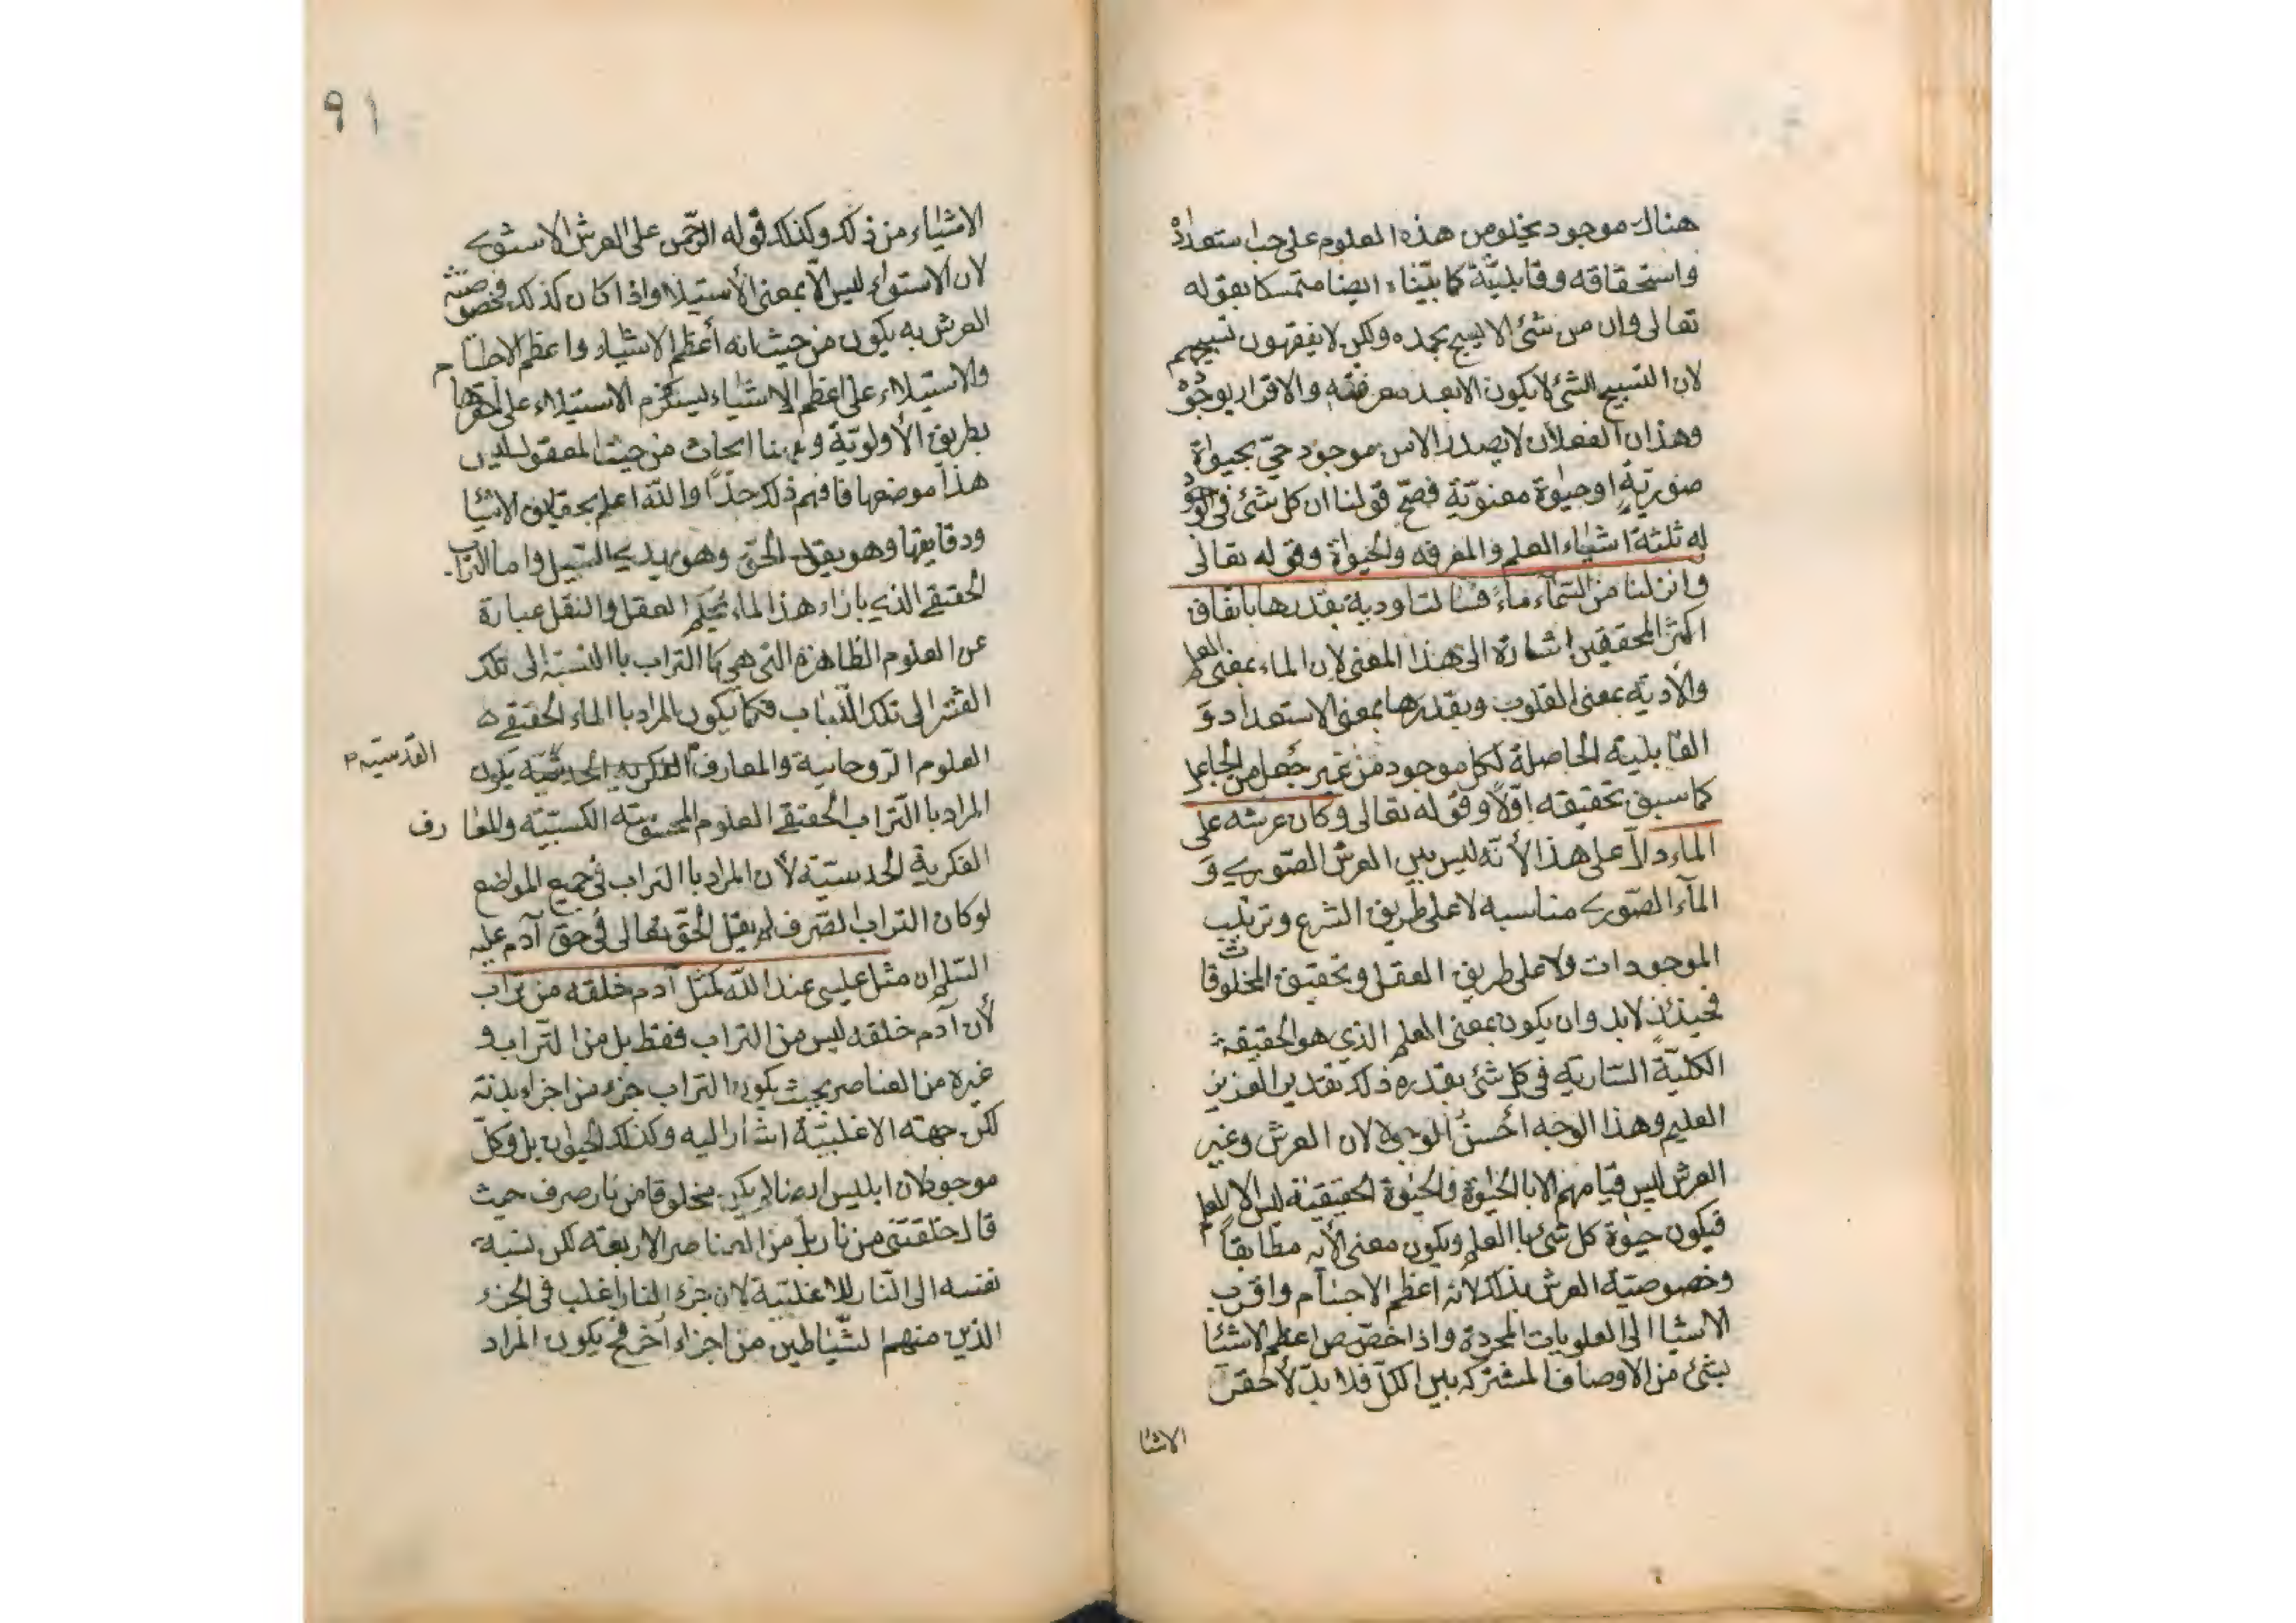 هناك موجود يخلو من هذه العلوم على حسب استعداده
واستحقاقه وقابليّة كما بيّناه ايضا متمسكا بقوله
تعالى وان من شئ الا يسبح بحمده ولكن لا يفقهون تسبيحهم
لان التسبيح الشئ لا يكون الا بعد معرفته والاقرار بوجوده
وهذان الفعلان لا يصدر الا من موجود حيّ بحيوة
صوريّة او حيوة معنويّة فصحّ قولنا ان كل شئ فى الوجود
له ثلثة اشياء العلم والمعرفه والحيوة وقوله تعالى
وانزلنا من السّماء ماءً فسالت اودية بقدرها باتفاق
اكثر المحققين اشارة الى هذا المعنى لان الماء بمعنى العلم
والأدية بمعنى القلوب وبقدرها بمعنى الاستعداد و
القابلية الحاصلة لكل موجود من غير جعل من الجاعل
كما سبق تحقيقه اوّلاً وقوله تعالى وكان عرشه على
الماء دالّ على هذا لأنّه ليس بين العرش الصّوري و
المآء الصّوري مناسبه لا على طريق الشرع وترتيب
الموجودات ولا على طريق العقل وتحقيق المخلوقات
فحينئذٍ لابد وان يكون بمعنى العلم الذي هو الحقيقة
الكليّة السّارية فى كل شئ بقدره ذلك تقدير العزيز
العليم وهذا الوجه أحسن الوجوه لان العرش وغير
العرش ليس قيامهم الا بالحيوة والحيوة الحقيقيّة ليس الا للعلم
فيكون حيوة كل شئ باالعلم ويكون معنى الأية مطابقاً
وخصوصيّة العرش بذلك لانه اعظم الاجسام واقرب
الاشيا الى العلويات المجردة واذا خصّص اعظم الاشيا
بشئ من الاوصاف المشتركه بين الكلّ فلا بدّ لأحقر
الاشيا
٩١
الاشياء من ذلك وكذلك قوله الرّحمن على العرش الاستوى
لان الاستواء ليس الّا بمعنى الأستيلا واذا كان كذلك فخصوصيّته
العرش به يكون من حيث انه أعظم الاشياء واعظم الاجسام
والاستيلاء على اعظم الاشياء يستلزم الاستيلاء على أحقرها
بطريق الأولويّة وههنا ابحاث من حيث المعقول ليس
هذا موضعها فافهم ذلك جدّاً واللّه اعلم بحقايق الاشيا
ودقايقها وهو يقول الحقّ وهو يهدي السّبيل واما التراب
الحقيقي الذي بازاء هذا الماء بحكم العقل والنقل عبارة
عن العلوم الظاهرة التى هى كاالتراب باالنسبة الى تلك
القشر الى تلك اللّباب فكما يكون المراد باالماء الحقيقي
العلوم الرّوحانية والمعارف الفكرية الحدسيّة يكون
القدسيّه
المراد باالتراب الحقيقي العلوم الكسبيّة والمعارف
الفكرية الحدسيّة لأن المراد باالتراب فى جميع المواضع
لو كان التراب الصّرف لم يقل الحقّ تعالى فى حق آدم عليه
السّلم ان مثل عيسى عند اللّه كمثل آدم خلقه من تراب
لأن آدم خلقه ليس من التراب فقط بل من التّراب و
غيره من العناصر بحيث يكون التراب جزء من اجزاء بدنه
لكن جهته الاغلبيّة اشار اليه وكذلك الحيوان بل وكلّ
موجود لان ابليس لم يكن مخلوقا من نار صرف حيث
قال خلقتنى من نار بل من العناصر الاربعة لكن نسبة
نفسه الى النّار للاغلبيّة لان جزء النار اغلب فى الجزء
الذين منهم الشّياطين من اجزاء أخر فح يكون المراد